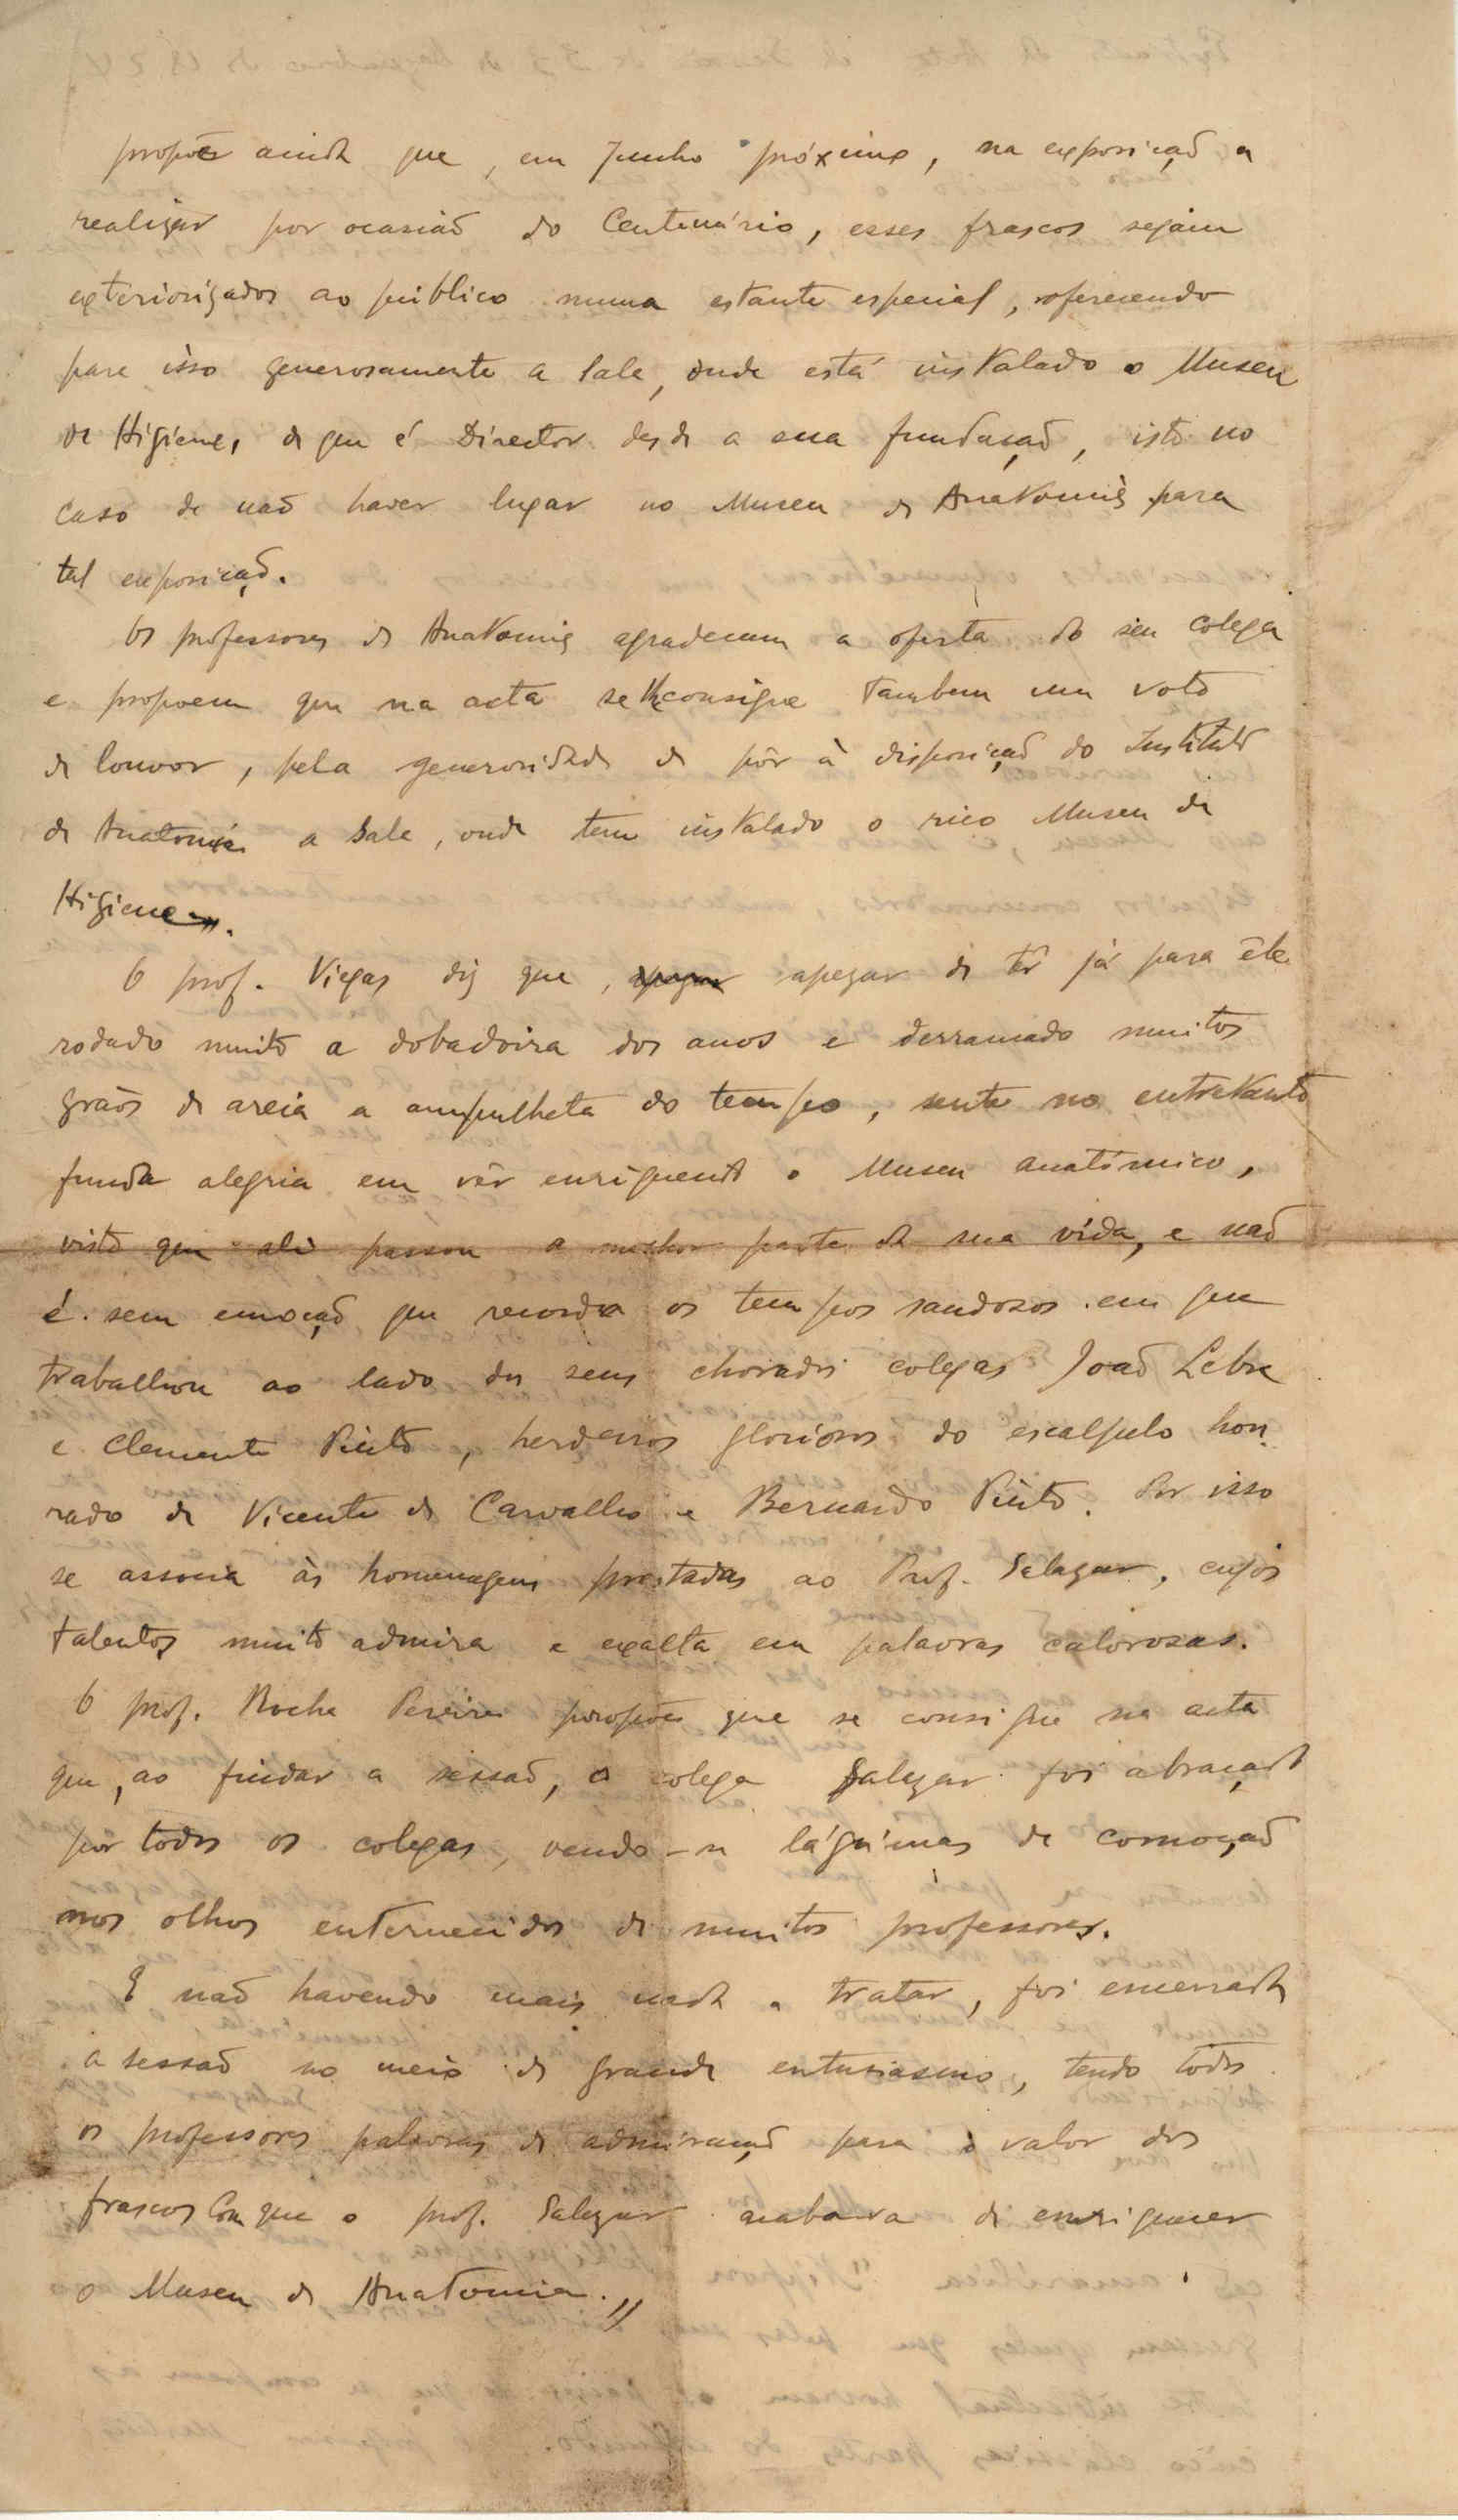 propõe ainda que, em Junho próximo, na exposição a
realizar por ocasião do Centenário, esses frascos sejam
exteriorizados ao público numa estante especial, oferecendo
para isso generosamente a Sala, onde está instalado o Museu
de Higiene, de que é Director desde a sua fundação, isto no
caso de não haver lugar no Museu de Anatomia para
tal exposição.
Os professores de Anatomia agradecem a oferta do seu colega
e propoem que na acta se consigne tambem um voto
de louvor, pela generosidade de pôr à disposição do Instituto
de Anatomia a Sala, onde tem instalado o rico Museu de
Higiene.
O prof. Viegas diz que, apezar de têr já para êle
rodado muito a dobadoira dos anos e derramado muitos
grãos de areia a ampulheta do tempo, sente no entretanto
funda alegria em vêr enriquecido o Museu anatómico,
visto que ali passou a melhor parte da sua vida, e não
é sem emoção que recorda os tempos saudosos em que
trabalhou ao lado dos seus chorados colegas João Lebre
e Clemente Pinto, herdeiros gloriosos do escalpelo hon-
rado de Vicente de Carvalho e Bernardo Pinto. Por isso
se associa às homenagens prestadas ao Prof. Salazar, cujos
talentos muito admira e exalta em palavras calorosas.
O prof. Rocha Pereira propões que se consigne na acta
que, ao findar a sessão, o colega Salazar foi abraçado
por todos os colegas, vendo-se lágrimas de comoção
nos olhos enternecidos de muitos professores.
E não havendo mais nada a tratar, foi encerrada
a sessão no meio de grande entusiasmo, tendo todos
os professores palavras de admiração para o valor dos
frascos com que o prof. Salazar acabava de enriquecer
o Museu de Anatomia.//